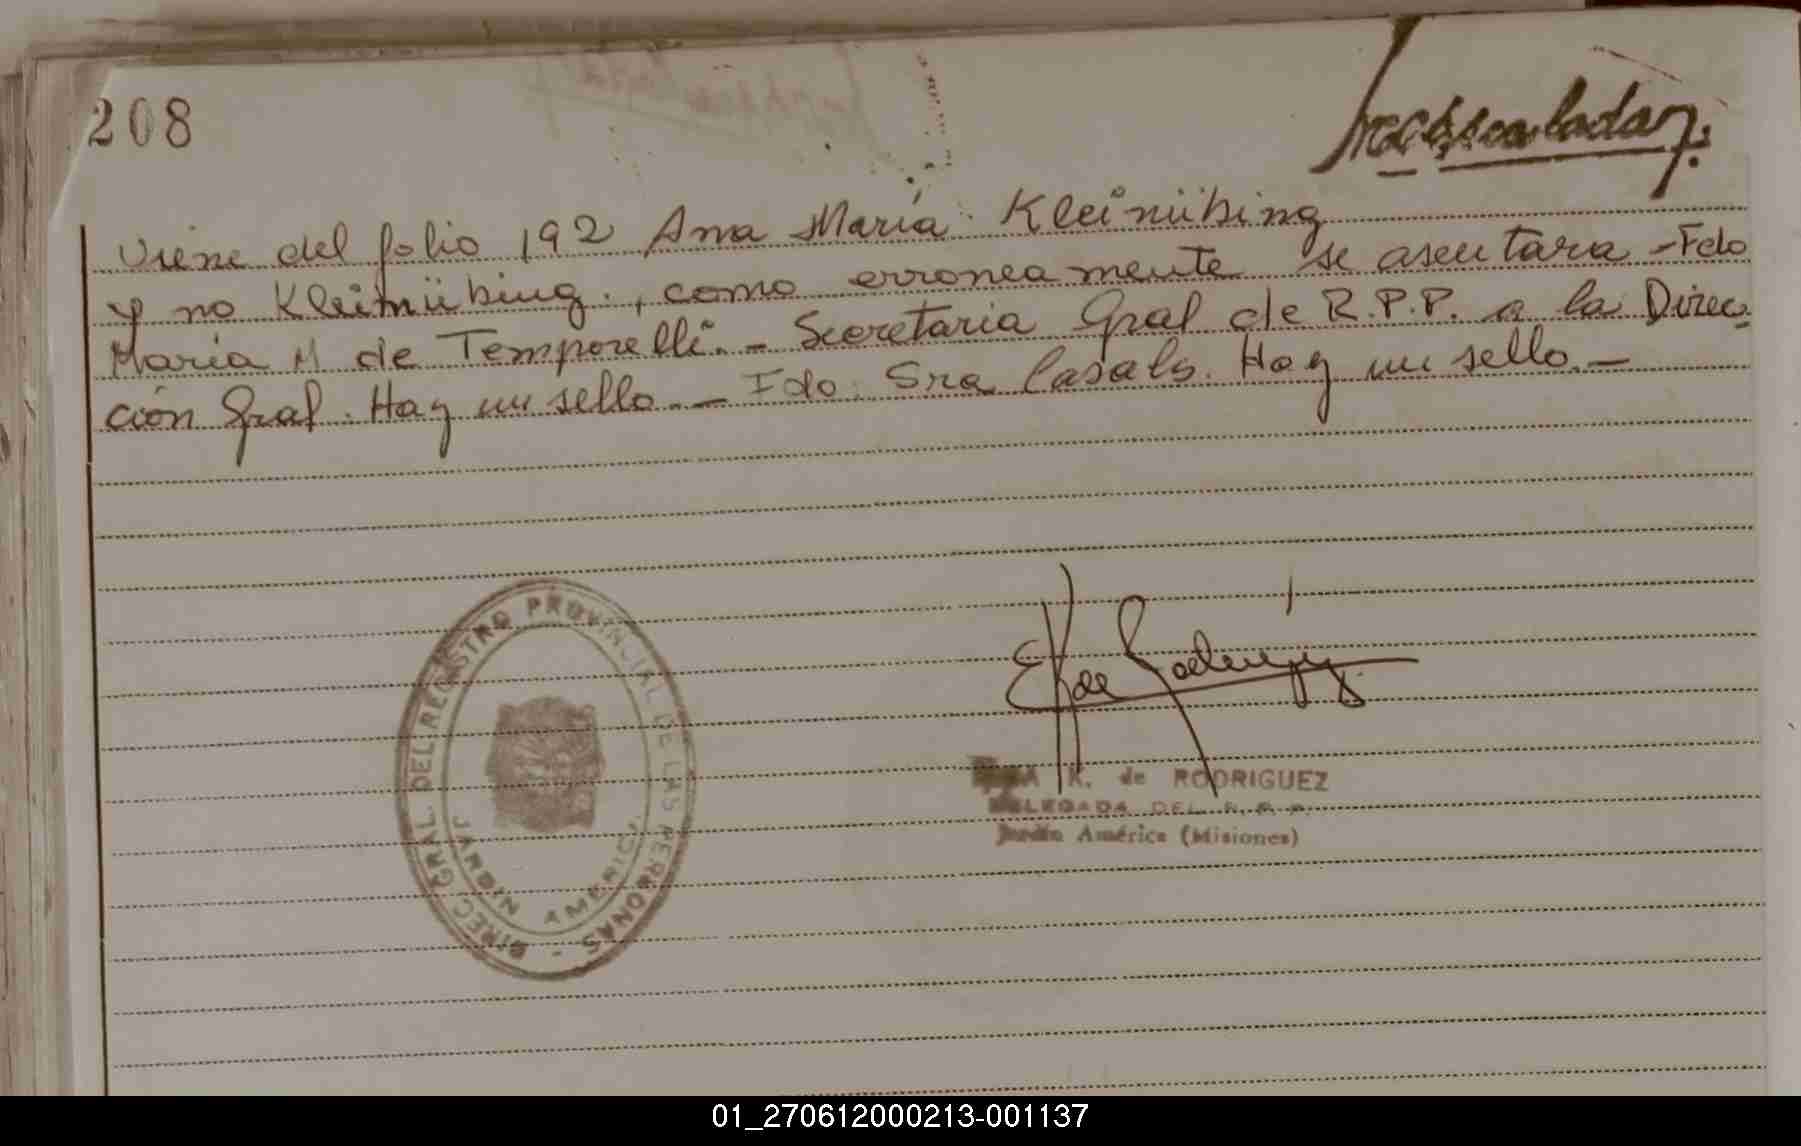 208
Viene del folio 192 Ana María Kleinübing
y no Kleimübing., como erroneamente se asentara - Fdo
María M de Temporelli. - Secretaria Gral de R.P.P. a la Direc
ción Gral. Hay un sello. - Fdo. Sra Casals. Hay un sello. -
DIREC. GRAL. DEL REGISTRO PROVINCIAL DE LAS PERSONAS -
JARDIN AMERICA
E K de Rodriguez
K. de RODRIGUEZ
DELEGADA DEL R. P. P.
Jardín América (Misiones)
01_270612000213-001137